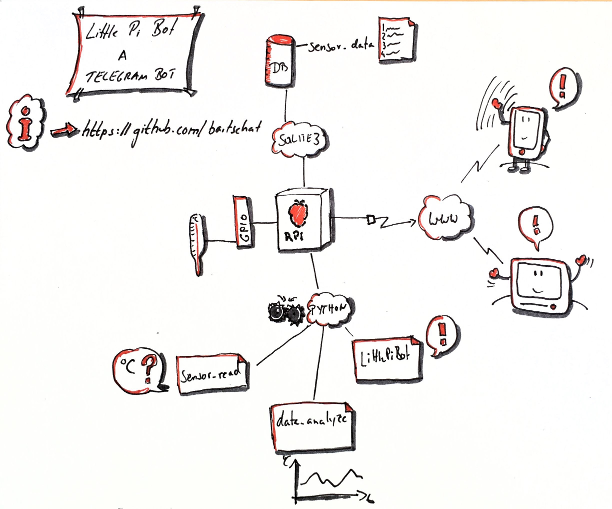 Little Pi Bot
A
TELEGRAM BOT
https://github.com/baitschat
DB
sensor_data
1
2
3
4
SQLITE3
GPIO
RPI
WWW
!
!
PYTHON
°C ?
sensor_read
LittlePiBot
!
data_analyze
°C
t